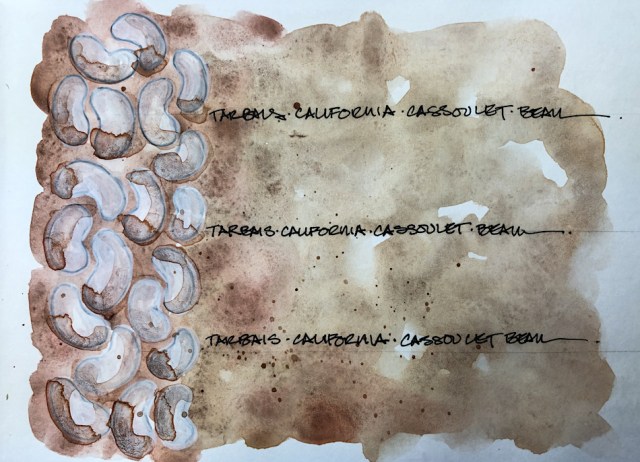 TARBAIS · CALIFORNIA · CASSOULET · BEAN
TARBAIS · CALIFORNIA · CASSOULET · BEAN
TARBAIS · CALIFORNIA · CASSOULET BEAN